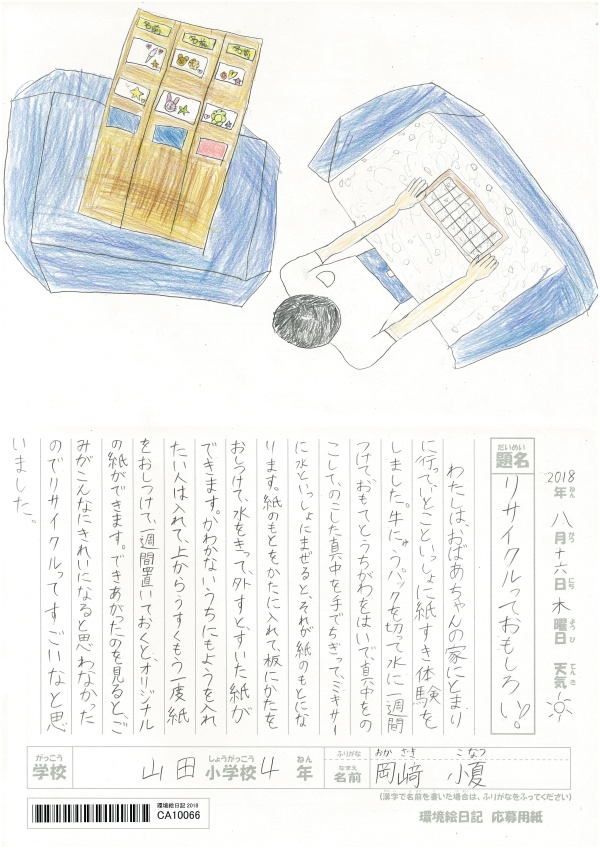 名前
名前
名前
2018年 八月十六日 木曜日 天気
ねん がつ にち ようび てんき
だいめい
題名
リサイクルっておもしろい!
わたしは、おばあちゃんの家にとまり
に行って、いとこといっしょに紙すき体験を
しました。牛にゅうパックを切って水に一週間
つけて、おもてとうちがわをはいで、真中をの
こして、のこした真中を手でちぎって、ミキサー
に水といっしょにまぜると、それが紙のもとにな
ります。紙のもとをかたに入れて、板にかたを
おしつけて、水をきって、外すと、すいた紙が
できます。かわかないうちにもようを入れ
たい人は入れて、上からうすくもう一度紙
をおしつけて、一週間置いておくと、オリジナル
の紙ができます。できあがったのを見ると、ご
みがこんなにきれいになると思わなかった
のでリサイクルってすごいなと思
いました。
がっこう しょうがっこう ねん
学校 山田 小学校 4 年
ふりがな おか ざき こなつ
なまえ
名前 岡﨑 小夏
(漢字で名前を書いた場合は、ふりがなをふってください)
環境絵日記 2018
CA10066
環境絵日記 応募用紙